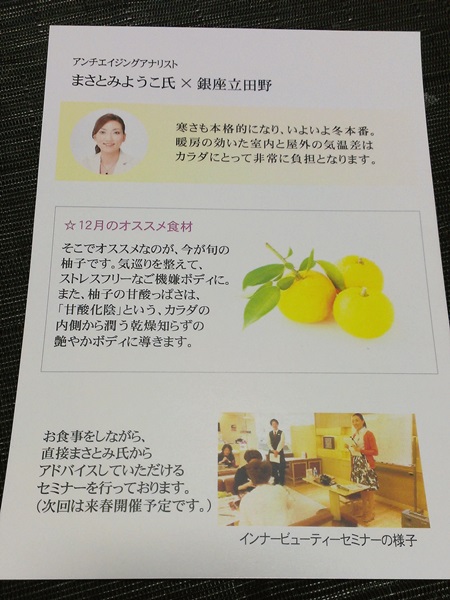 アンチエイジングアナリスト
まさとみようこ氏 × 銀座立田野
寒さも本格的になり、いよいよ冬本番。
暖房の効いた室内と屋外の気温差は
カラダにとって非常に負担となります。
☆12月のオススメ食材
そこでオススメなのが、今が旬の
柚子です。気巡りを整えて、
ストレスフリーなご機嫌ボディに。
また、柚子の甘酸っぱさは、
「甘酸化陰」という、カラダの
内側から潤う乾燥知らずの
艶やかボディに導きます。
お食事をしながら、
直接まさとみ氏から
アドバイスしていただける
セミナーを行っております。
(次回は来春開催予定です。)
インナービューティーセミナーの様子